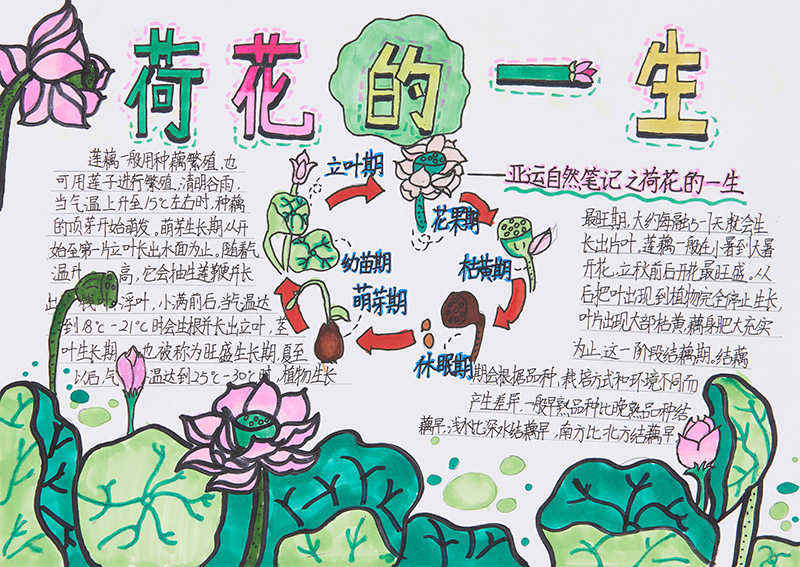 荷花的一生
亚运自然笔记之荷花的一生
莲藕一般用种藕繁殖,也
可用莲子进行繁殖,清明谷雨,
当气温上升至15℃左右时,种藕
的顶芽开始萌发。萌芽生长期从开
始至第一片立叶长出水面为止。随着气
温升高,它会抽生莲鞭并长
出钱叶。浮叶,小满前后,当气温达
到18℃-21℃时会生根并长出立叶,茎
叶生长期,也被称为旺盛生长期,夏至
以后,气温达到25℃-30℃时,植物生长
立叶期
花果期
枯黄期
休眠期
萌芽期
幼苗期
最旺期,大约每隔5-7天就会生
长出片叶。莲藕一般在小暑到大暑
开花,立秋前后开花最旺盛。从
后把叶出现到植物完全停止生长,
叶片出现大部枯黄,藕身肥大充实
为止,这一阶段结藕期。结藕
期会根据品种,栽培方式和环境不同而
产生差异,一般早熟品种比晚熟品种结
藕早,浅水比深水结藕早,南方比北方结藕早